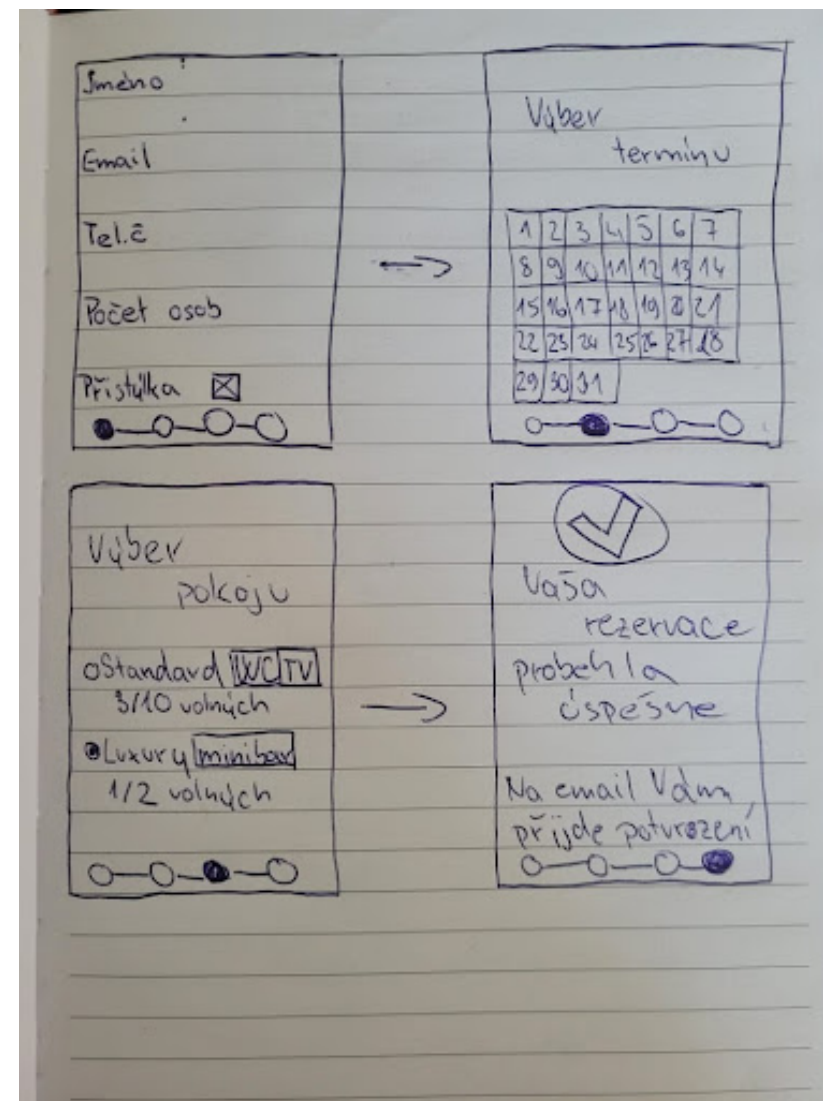 Jméno
Email
Tel.č
Počet osob
Přistýlka
Výber
termínu
1 2 3 4 5 6 7
8 9 10 11 12 13 14
15 16 17 18 19 20 21
22 23 24 25 26 27 28
29 30 31
Výber
pokoju
Standard WC TV
3/10 volných
Luxury minibar
1/2 volných
Vaša
rezervace
probehla
úspěšne
Na email Vám
přijde potvrození